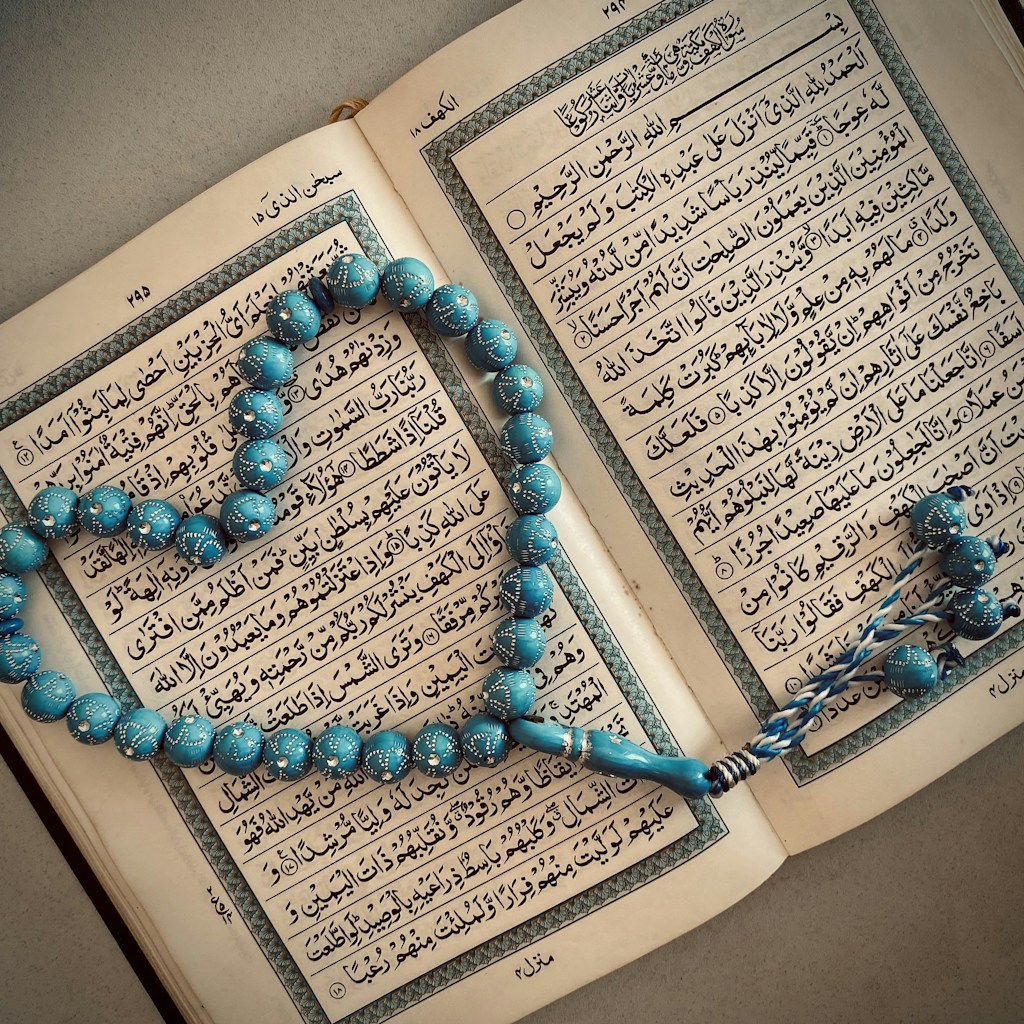 ۲۹۴
الكهف ١٨
سُوْرَةُ الْكَهْفِ مَكِّيَّةٌ وَّهِىَ
بِسْمِ اللّٰهِ الرَّحْمٰنِ الرَّحِيْمِ
اَلْحَمْدُ لِلّٰهِ الَّذِىْٓ اَنْزَلَ عَلٰى عَبْدِهِ الْكِتٰبَ وَلَمْ يَجْعَلْ
لَّهٗ عِوَجًا ۱ قَيِّمًا لِّيُنْذِرَ بَاْسًا شَدِيْدًا مِّنْ لَّدُنْهُ وَيُبَشِّرَ
الْمُؤْمِنِيْنَ الَّذِيْنَ يَعْمَلُوْنَ الصّٰلِحٰتِ اَنَّ لَهُمْ اَجْرًا حَسَنًا ۲
مَّاكِثِيْنَ فِيْهِ اَبَدًا ۳ وَّيُنْذِرَ الَّذِيْنَ قَالُوا اتَّخَذَ اللّٰهُ
وَلَدًا ۴ مَا لَهُمْ بِهٖ مِنْ عِلْمٍ وَّلَا لِاٰبَآئِهِمْ كَبُرَتْ كَلِمَةً
تَخْرُجُ مِنْ اَفْوَاهِهِمْ اِنْ يَّقُوْلُوْنَ اِلَّا كَذِبًا ۵ فَلَعَلَّكَ
بَاخِعٌ نَّفْسَكَ عَلٰٓى اٰثَارِهِمْ اِنْ لَّمْ يُؤْمِنُوْا بِهٰذَا الْحَدِيْثِ
اَسَفًا ۶ اِنَّا جَعَلْنَا مَا عَلَى الْاَرْضِ زِيْنَةً لَّهَا لِنَبْلُوَهُمْ اَيُّهُمْ
عَمَلًا ۷ وَاِنَّا لَجٰعِلُوْنَ مَا عَلَيْهَا صَعِيْدًا جُرُزًا ۸
اَنَّ اَصْحٰبَ الْكَهْفِ وَالرَّقِيْمِ كَانُوْا مِنْ
اِذْ اَوَى الْكَهْفِ فَقَالُوْا رَبَّنَآ
عَدَدًا
منزل ۴
سبحٰن الذىٓ ١٥
۲۹۵
اَىُّ الْحِزْبَيْنِ اَحْصٰى لِمَا لَبِثُوْٓا اَمَدًا ۱۲
بِالْحَقِّ اِنَّهُمْ فِتْيَةٌ اٰمَنُوْا بِرَبِّهِمْ
وَزِدْنٰهُمْ هُدًى ۱۳ قُلُوْبِهِمْ اِذْ
رَبُّنَا رَبُّ السَّمٰوٰتِ اِلٰهًا لَّقَدْ
قُلْنَآ اِذًا شَطَطًا ۱۴ هٰٓؤُلَآءِ قَوْمُنَا اٰلِهَةً لَوْ
لَا يَاْتُوْنَ عَلَيْهِمْ بِسُلْطٰنٍ بَيِّنٍ فَمَنْ اَظْلَمُ مِمَّنِ افْتَرٰى
عَلَى اللّٰهِ كَذِبًا ۱۵ وَاِذِ اعْتَزَلْتُمُوْهُمْ وَمَا يَعْبُدُوْنَ اِلَّا اللّٰهَ
فَاْوٗٓا اِلَى الْكَهْفِ يَنْشُرْ لَكُمْ رَبُّكُمْ مِّنْ رَّحْمَتِهٖ وَيُهَيِّئْ
مِّرْفَقًا ۱۶ وَتَرَى الشَّمْسَ اِذَا طَلَعَتْ
الْيَمِيْنِ وَاِذَا غَرَبَتْ الشِّمَالِ
وَهُمْ مَنْ يَّهْدِ اللّٰهُ فَهُوَ
الْمُهْتَدِ تَجِدَ لَهٗ وَلِيًّا مُّرْشِدًا ۱۷ وَ
اَيْقَاظًا وَّهُمْ رُقُوْدٌ وَّنُقَلِّبُهُمْ ذَاتَ الْيَمِيْنِ وَ
الشِّمَالِ وَكَلْبُهُمْ بَاسِطٌ ذِرَاعَيْهِ بِالْوَصِيْدِ لَوِ اطَّلَعْتَ
عَلَيْهِمْ لَوَلَّيْتَ مِنْهُمْ فِرَارًا وَّلَمُلِئْتَ مِنْهُمْ رُعْبًا ۱۸
منزل ۴